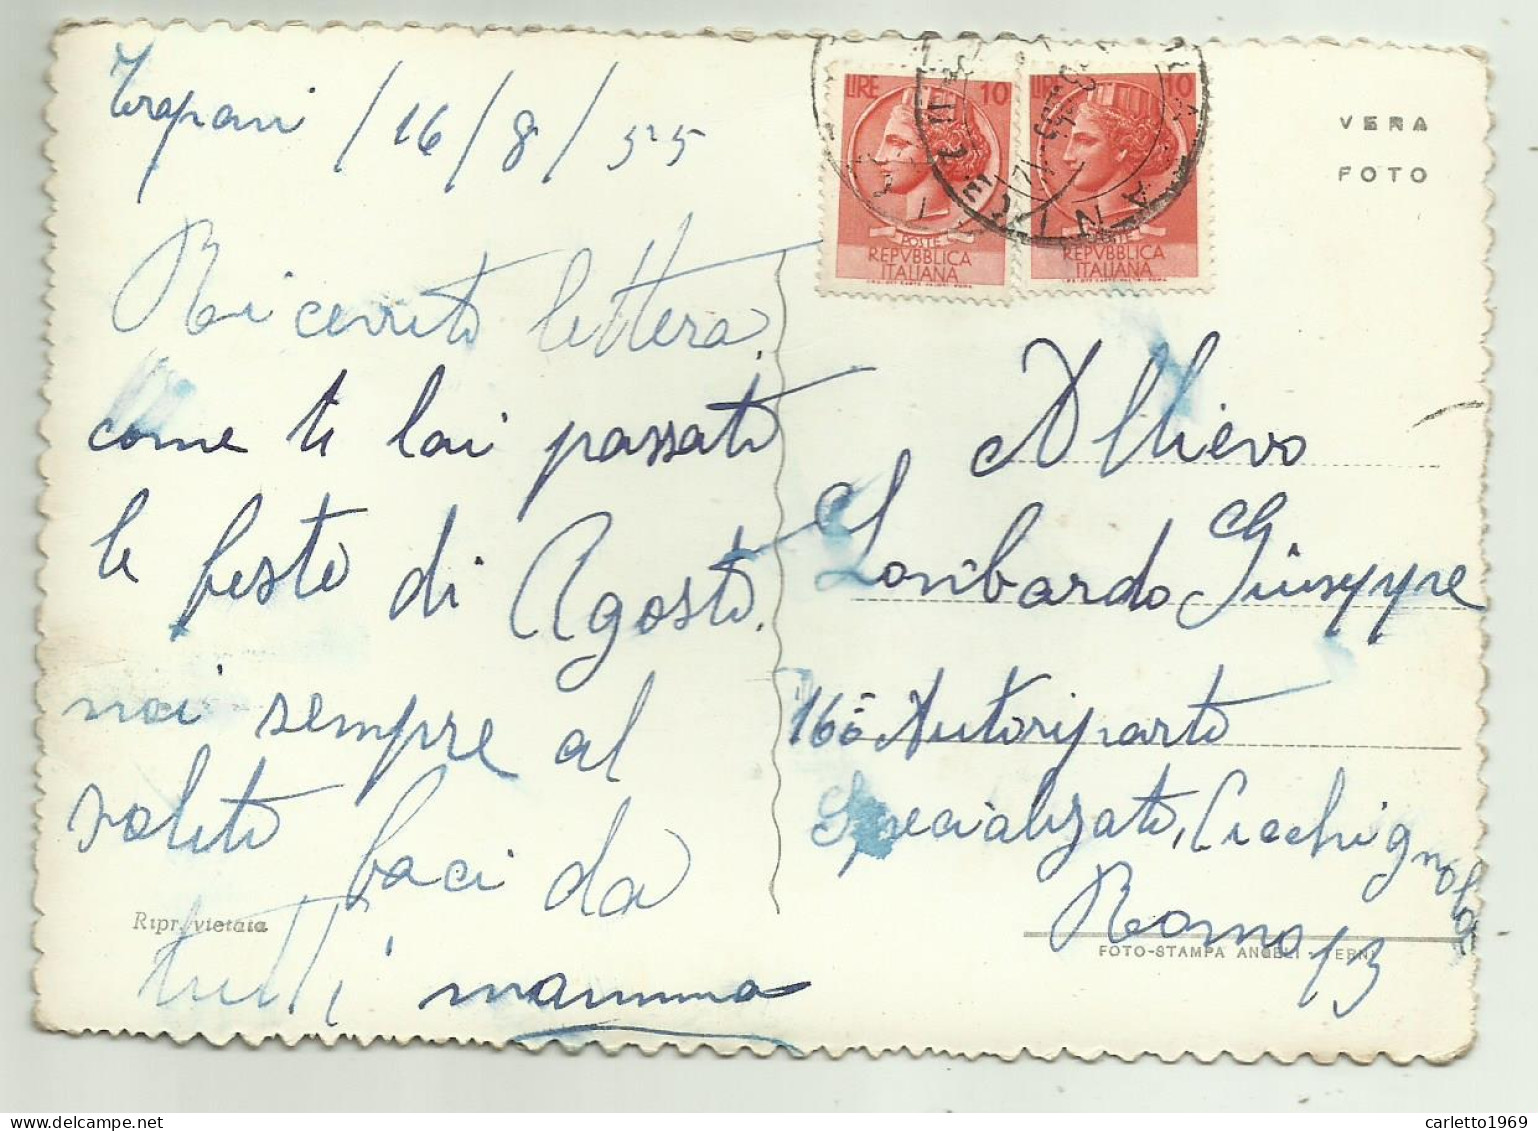 Trapani / 16 / 8 / 55
Ricevuto lettera.
come ti lai passato
le feste di Agosto.
noi sempre al
solito baci da
tutti mamma
Ripr. vietata
LIRE 10
POSTE
REPVBBLICA
ITALIANA
LIRE 10
REPVBBLICA
ITALIANA
VERA
FOTO
Allievo
Lombardo Giuseppe
16º Autoriparto
Specializati, Cicchignola
Roma 13
FOTO-STAMPA ANGELI - TERNI
carletto1969